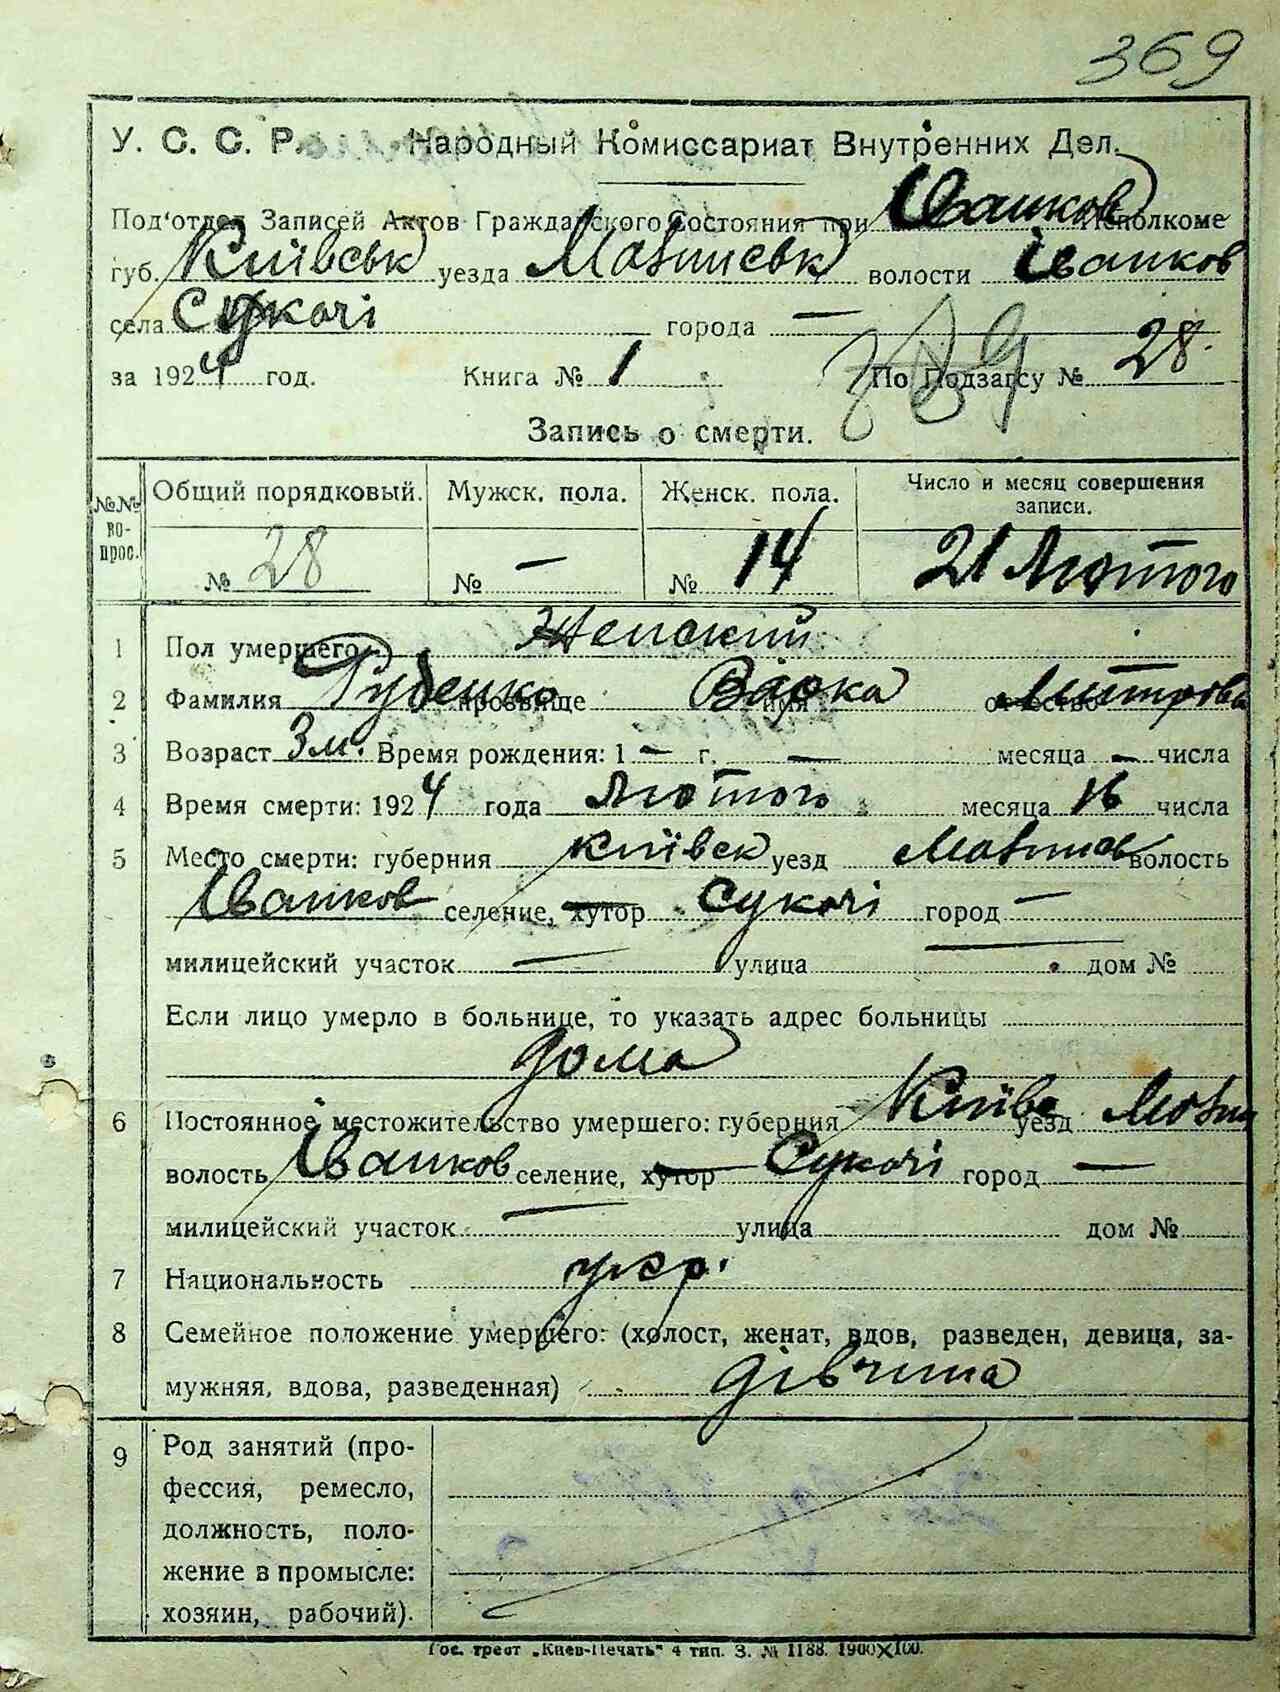 369
У. С. С. Р. Народный Комиссариат Внутренних Дел.
Под'отдел Записей Актов Гражданского Состояния при Іванков Исполкоме
губ. Київськ уезда волости Іванков
села Сукачі города —
за 1924 год. Книга № 1 По Подзагсу № 28.
Запись о смерти.
№№ вопрос. Общий порядковый. Мужск. пола. Женск. пола. Число и месяц совершения записи.
№ 28 № — № 14 21 Лютого
1 Пол умершего Женский
2 Фамилия прозвище Варка имя отчество Митрова
3 Возраст 3 м. Время рождения: 1 — г. — месяца — числа
4 Время смерти: 1924 года Лютого месяца 16 числа
5 Место смерти: губерния Київск уезд волость
Іванков селение, хутор Сукачі город —
милицейский участок — улица — дом №
Если лицо умерло в больнице, то указать адрес больницы
дома
6 Постоянное местожительство умершего: губерния Київс уезд
волость Іванков селение, хутор Сукачі город —
милицейский участок — улица дом №
7 Национальность укр.
8 Семейное положение умершего: (холост, женат, вдов, разведен, девица, за-
мужняя, вдова, разведенная) дівчина
9 Род занятий (про-
фессия, ремесло,
должность, поло-
жение в промысле:
хозяин, рабочий).
Гос. трест „Киев-Печать“ 4 тип. З. № 1188. 1900×100.